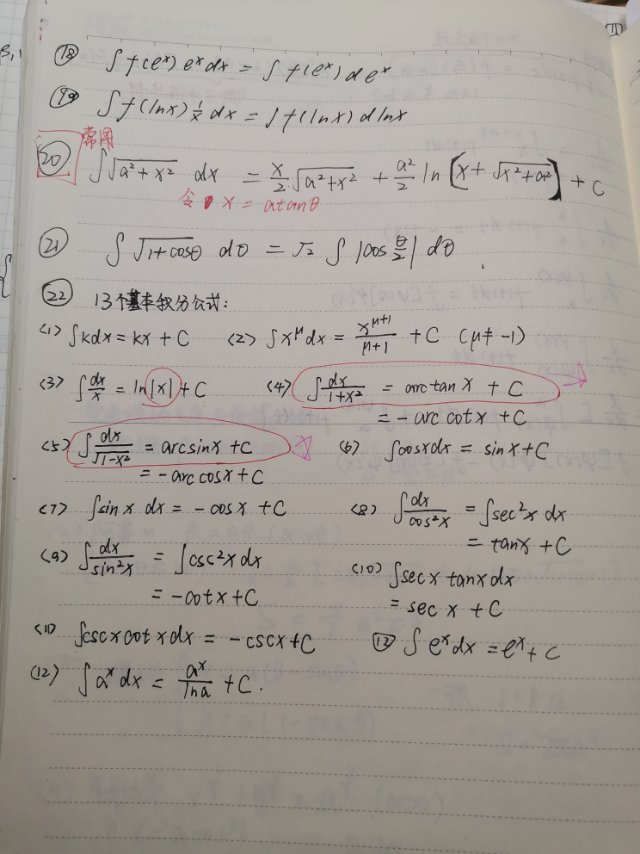 ⑱ ∫f(eˣ)eˣdx = ∫f(eˣ)deˣ
⑲ ∫f(lnx)1/x dx = ∫f(lnx)dlnx
常用
⑳ ∫√(a²+x²) dx = x/2 √(a²+x²) + a²/2 ln[x+√(x²+a²)] + C
令 x = atanθ
㉑ ∫√(1+cosθ) dθ = √2 ∫|cos θ/2| dθ
㉒ 13个基本积分公式:
(1) ∫kdx = kx + C (2) ∫x^μ dx = x^(μ+1)/(μ+1) + C (μ≠-1)
(3) ∫dx/x = ln|x| + C (4) ∫dx/(1+x²) = arctanx + C
= -arccotx + C
(5) ∫dx/√(1-x²) = arcsinx + C (6) ∫cosxdx = sinx + C
= -arccosx + C
(7) ∫sinx dx = -cosx + C (8) ∫dx/cos²x = ∫sec²x dx
= tanx + C
(9) ∫dx/sin²x = ∫csc²x dx (10) ∫secx tanxdx
= -cotx + C = secx + C
(11) ∫cscxcotxdx = -cscx + C ⑫ ∫eˣdx = eˣ + C
(12) ∫aˣdx = aˣ/lna + C.